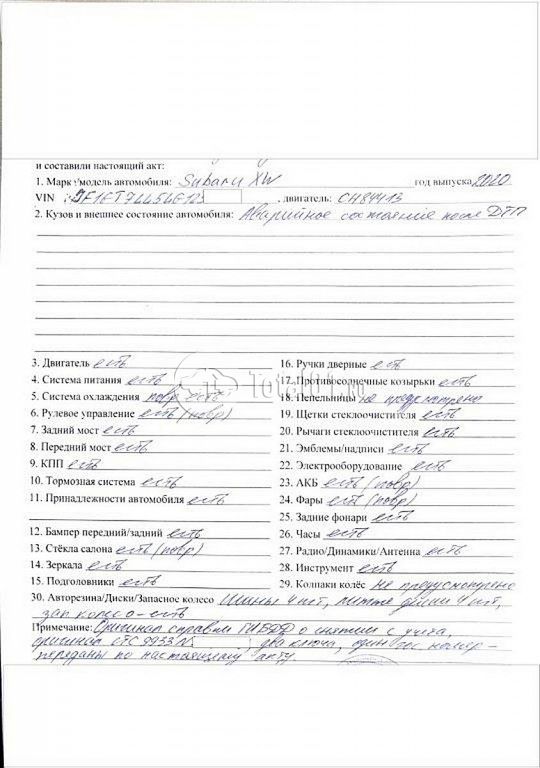 и составили настоящий акт:
1. Марка/модель автомобиля: Subaru XV год выпуска 2020
VIN JF1GT74L54G12 , двигатель: CH84413
2. Кузов и внешнее состояние автомобиля: Аварийное состояние после ДТП
3. Двигатель есть 16. Ручки дверные есть
4. Система питания есть 17. Противосолнечные козырьки есть
5. Система охлаждения повр есть 18. Пепельницы не предусмотрена
6. Рулевое управление есть (повр) 19. Щетки стеклоочистителя есть
7. Задний мост есть 20. Рычаги стеклоочистителя есть
8. Передний мост есть 21. Эмблемы/надписи есть
9. КПП есть 22. Электрооборудование есть
10. Тормозная система есть 23. АКБ есть (повр)
11. Принадлежности автомобиля есть 24. Фары есть (повр)
25. Задние фонари есть
12. Бампер передний/задний есть 26. Часы есть
13. Стёкла салона есть (повр) 27. Радио/Динамики/Антенна есть
14. Зеркала есть 28. Инструмент есть
15. Подголовники есть 29. Колпаки колёс не предусмотрено
30. Авторезина/Диски/Запасное колесо Шины 4 шт, литые диски 4 шт,
зап колесо - есть
Примечание: Оригинал справки ГИБДД о снятии с учета,
оригинал СТС 9933 N , два ключа, один гос. номер -
переданы по настоящему акту.
Total01.ru